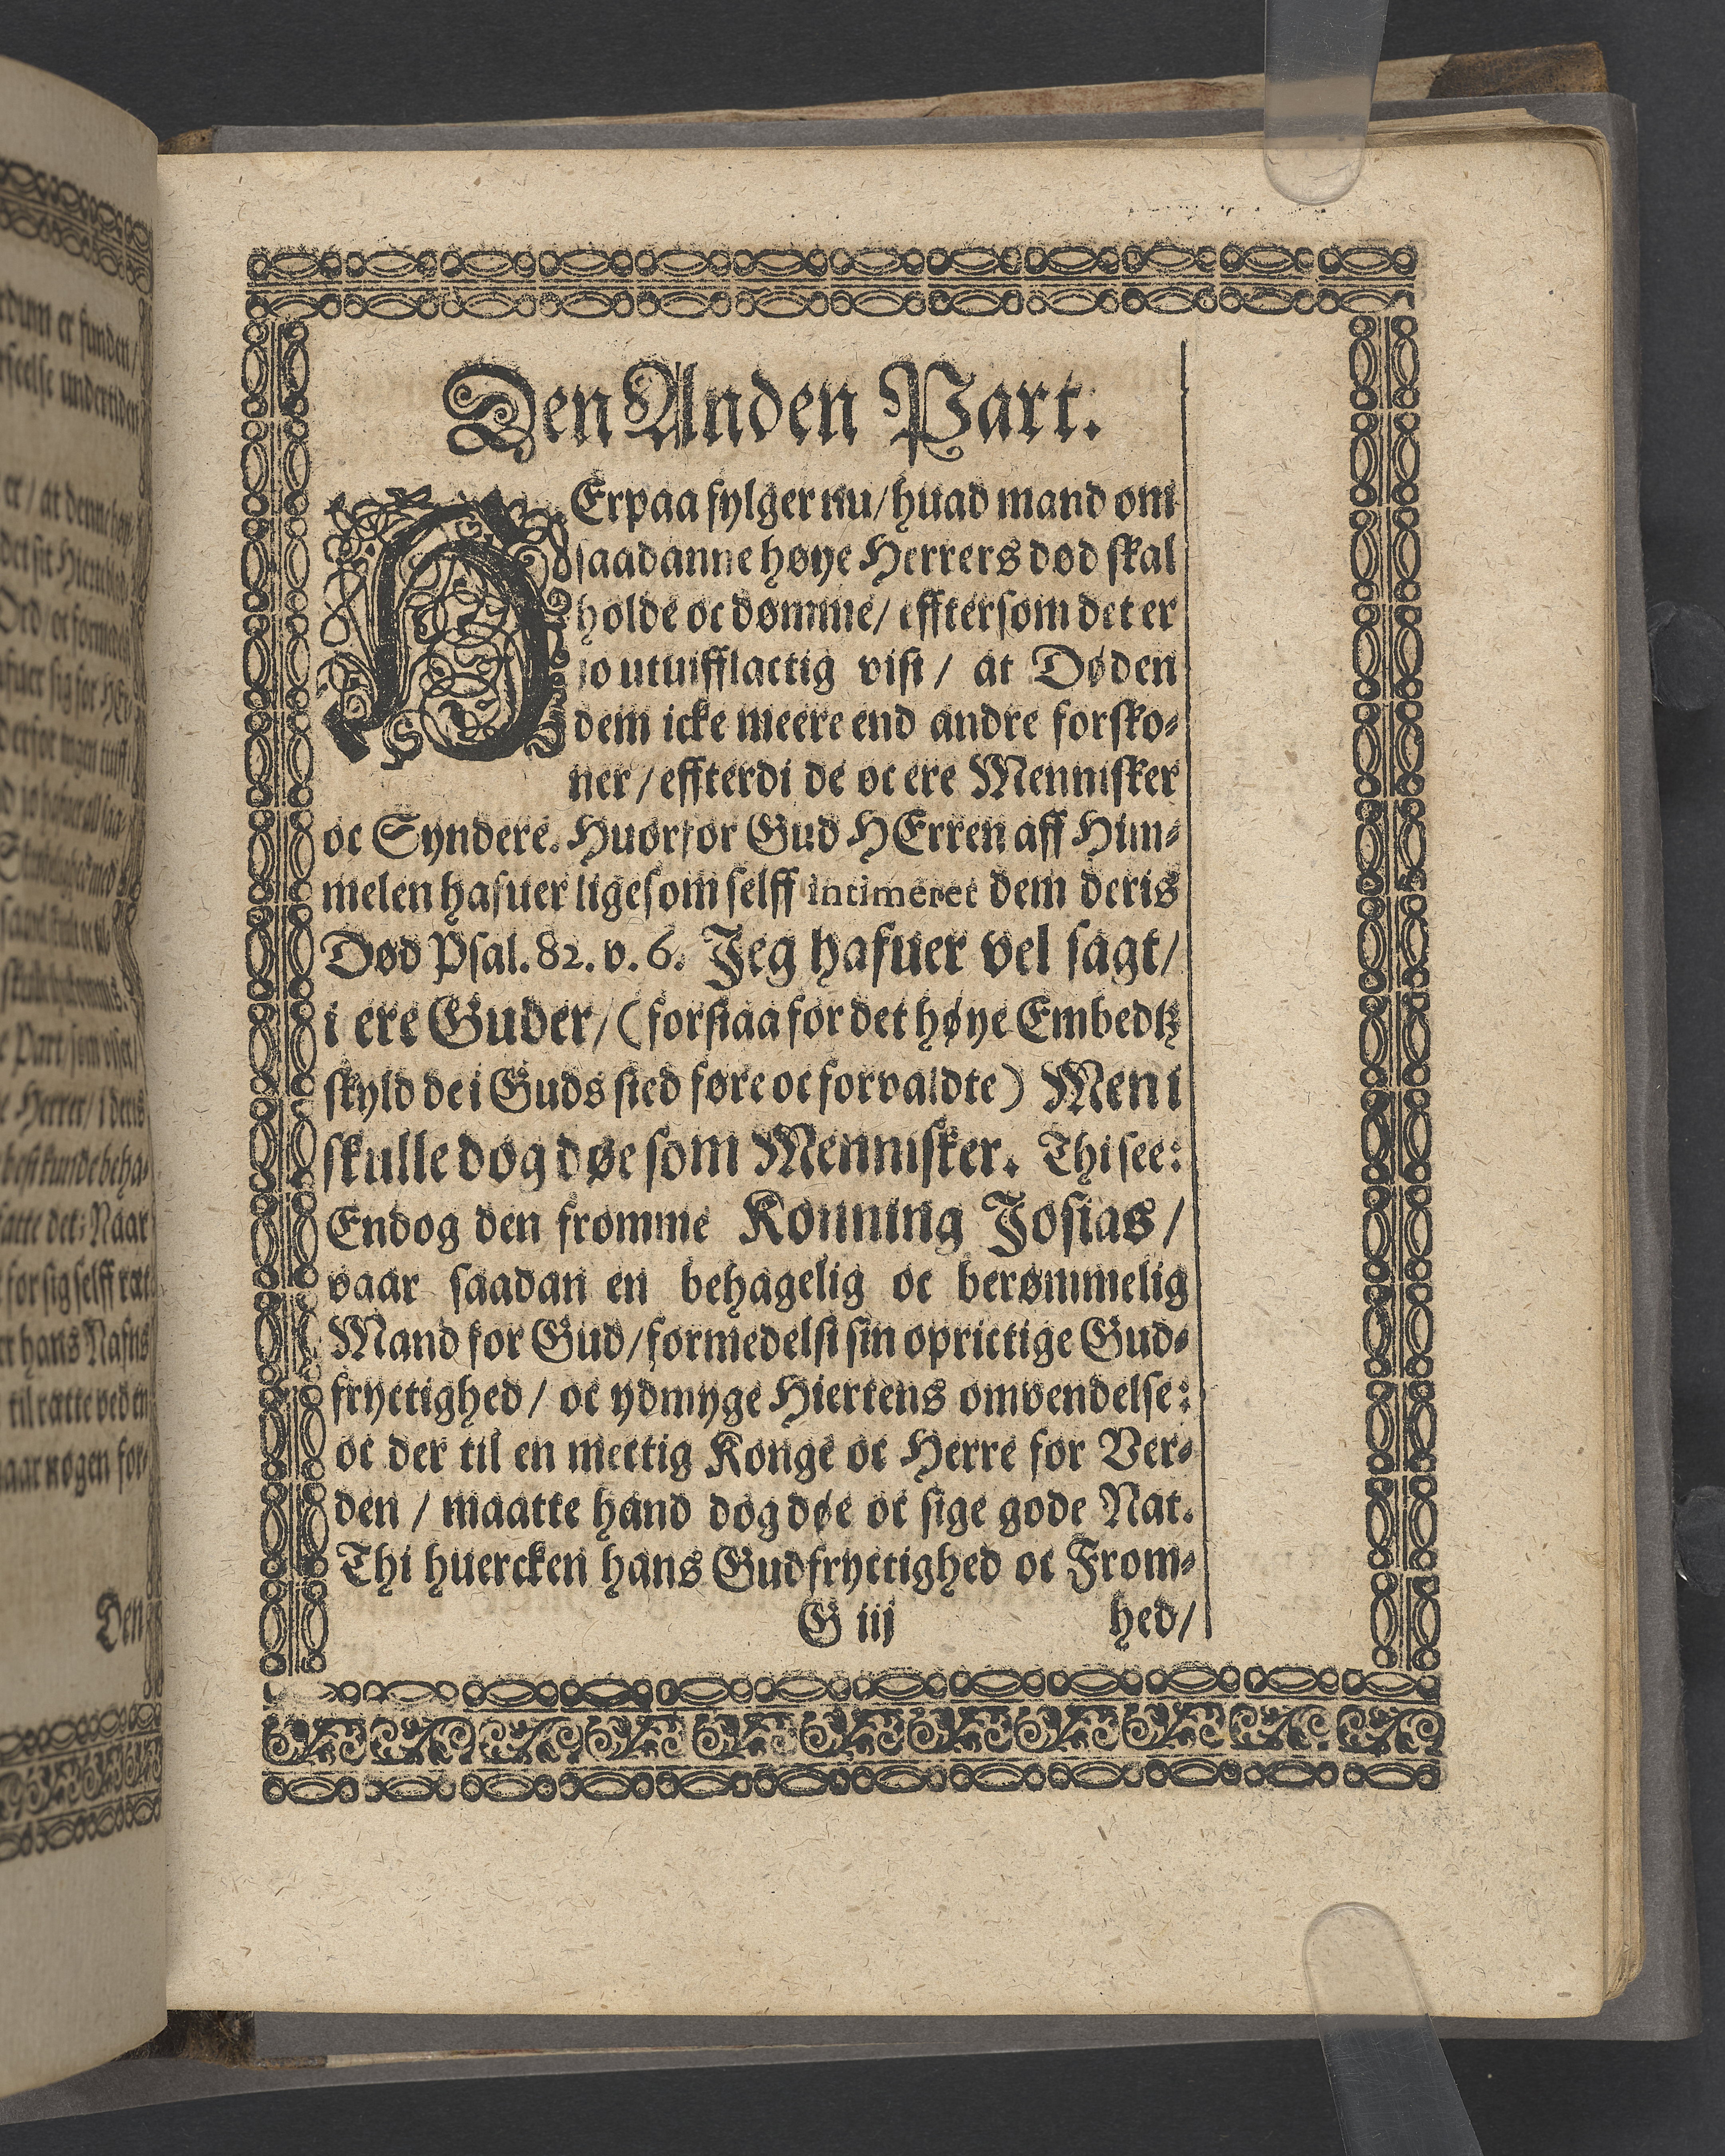 Den Anden Part.
HErpaa fylger nu/ huad mand om
saadanne høye Herrers død skal
holde oc dømme/ efftersom det er
jo utuifflactig vist/ at Døden
dem icke meere end andre forsko-
ner/ effterdi de oc ere Mennisker
oc Syndere. Huorfor Gud HErren aff Him-
melen hafuer ligesom selff intimeret dem deris
Død Psal. 82. v. 6. Jeg hafuer vel sagt/
i ere Guder/ (forstaa for det høye Embedtz
skyld de i Guds sted føre oc forvaldte) Men i
skulle dog døe som Mennisker. Thi see:
Endog den fromme Konning Josias/
vaar saadan en behagelig oc berømmelig
Mand for Gud/ formedelst sin oprictige Gud-
fryctighed/ oc ydmyge Hiertens omvendelse:
oc der til en mectig Konge oc Herre for Ver-
den/ maatte hand dog døe oc sige gode Nat.
Thi huercken hans Gudfryctighed oc From-
G iij hed/
er funden/
undertiden
er/ at denne
Ord/ oc
Part/ som
Herrer/ i deris
best kunde beha-
det: Naar
for sig selff ræt
hans Nafns
til rætte ved en
nogen for-
Den